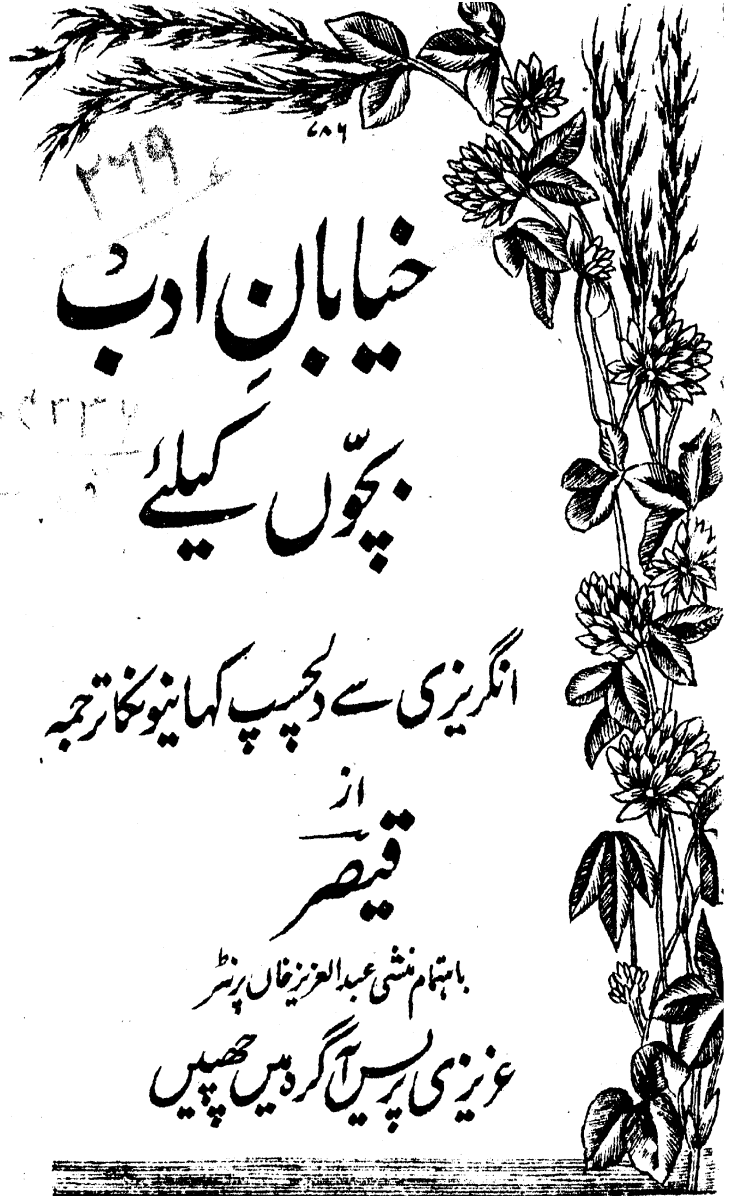 ۷۸۶
۲۶۹
خیابانِ ادب
بچّوں کیلئے
انگریزی سے دلچسپ کہانیونکا ترجمہ
از
قیصر
باہتمام منشی عبدالعزیز خاں پرنٹر
عزیزی پریس آگرہ میں چھپیں